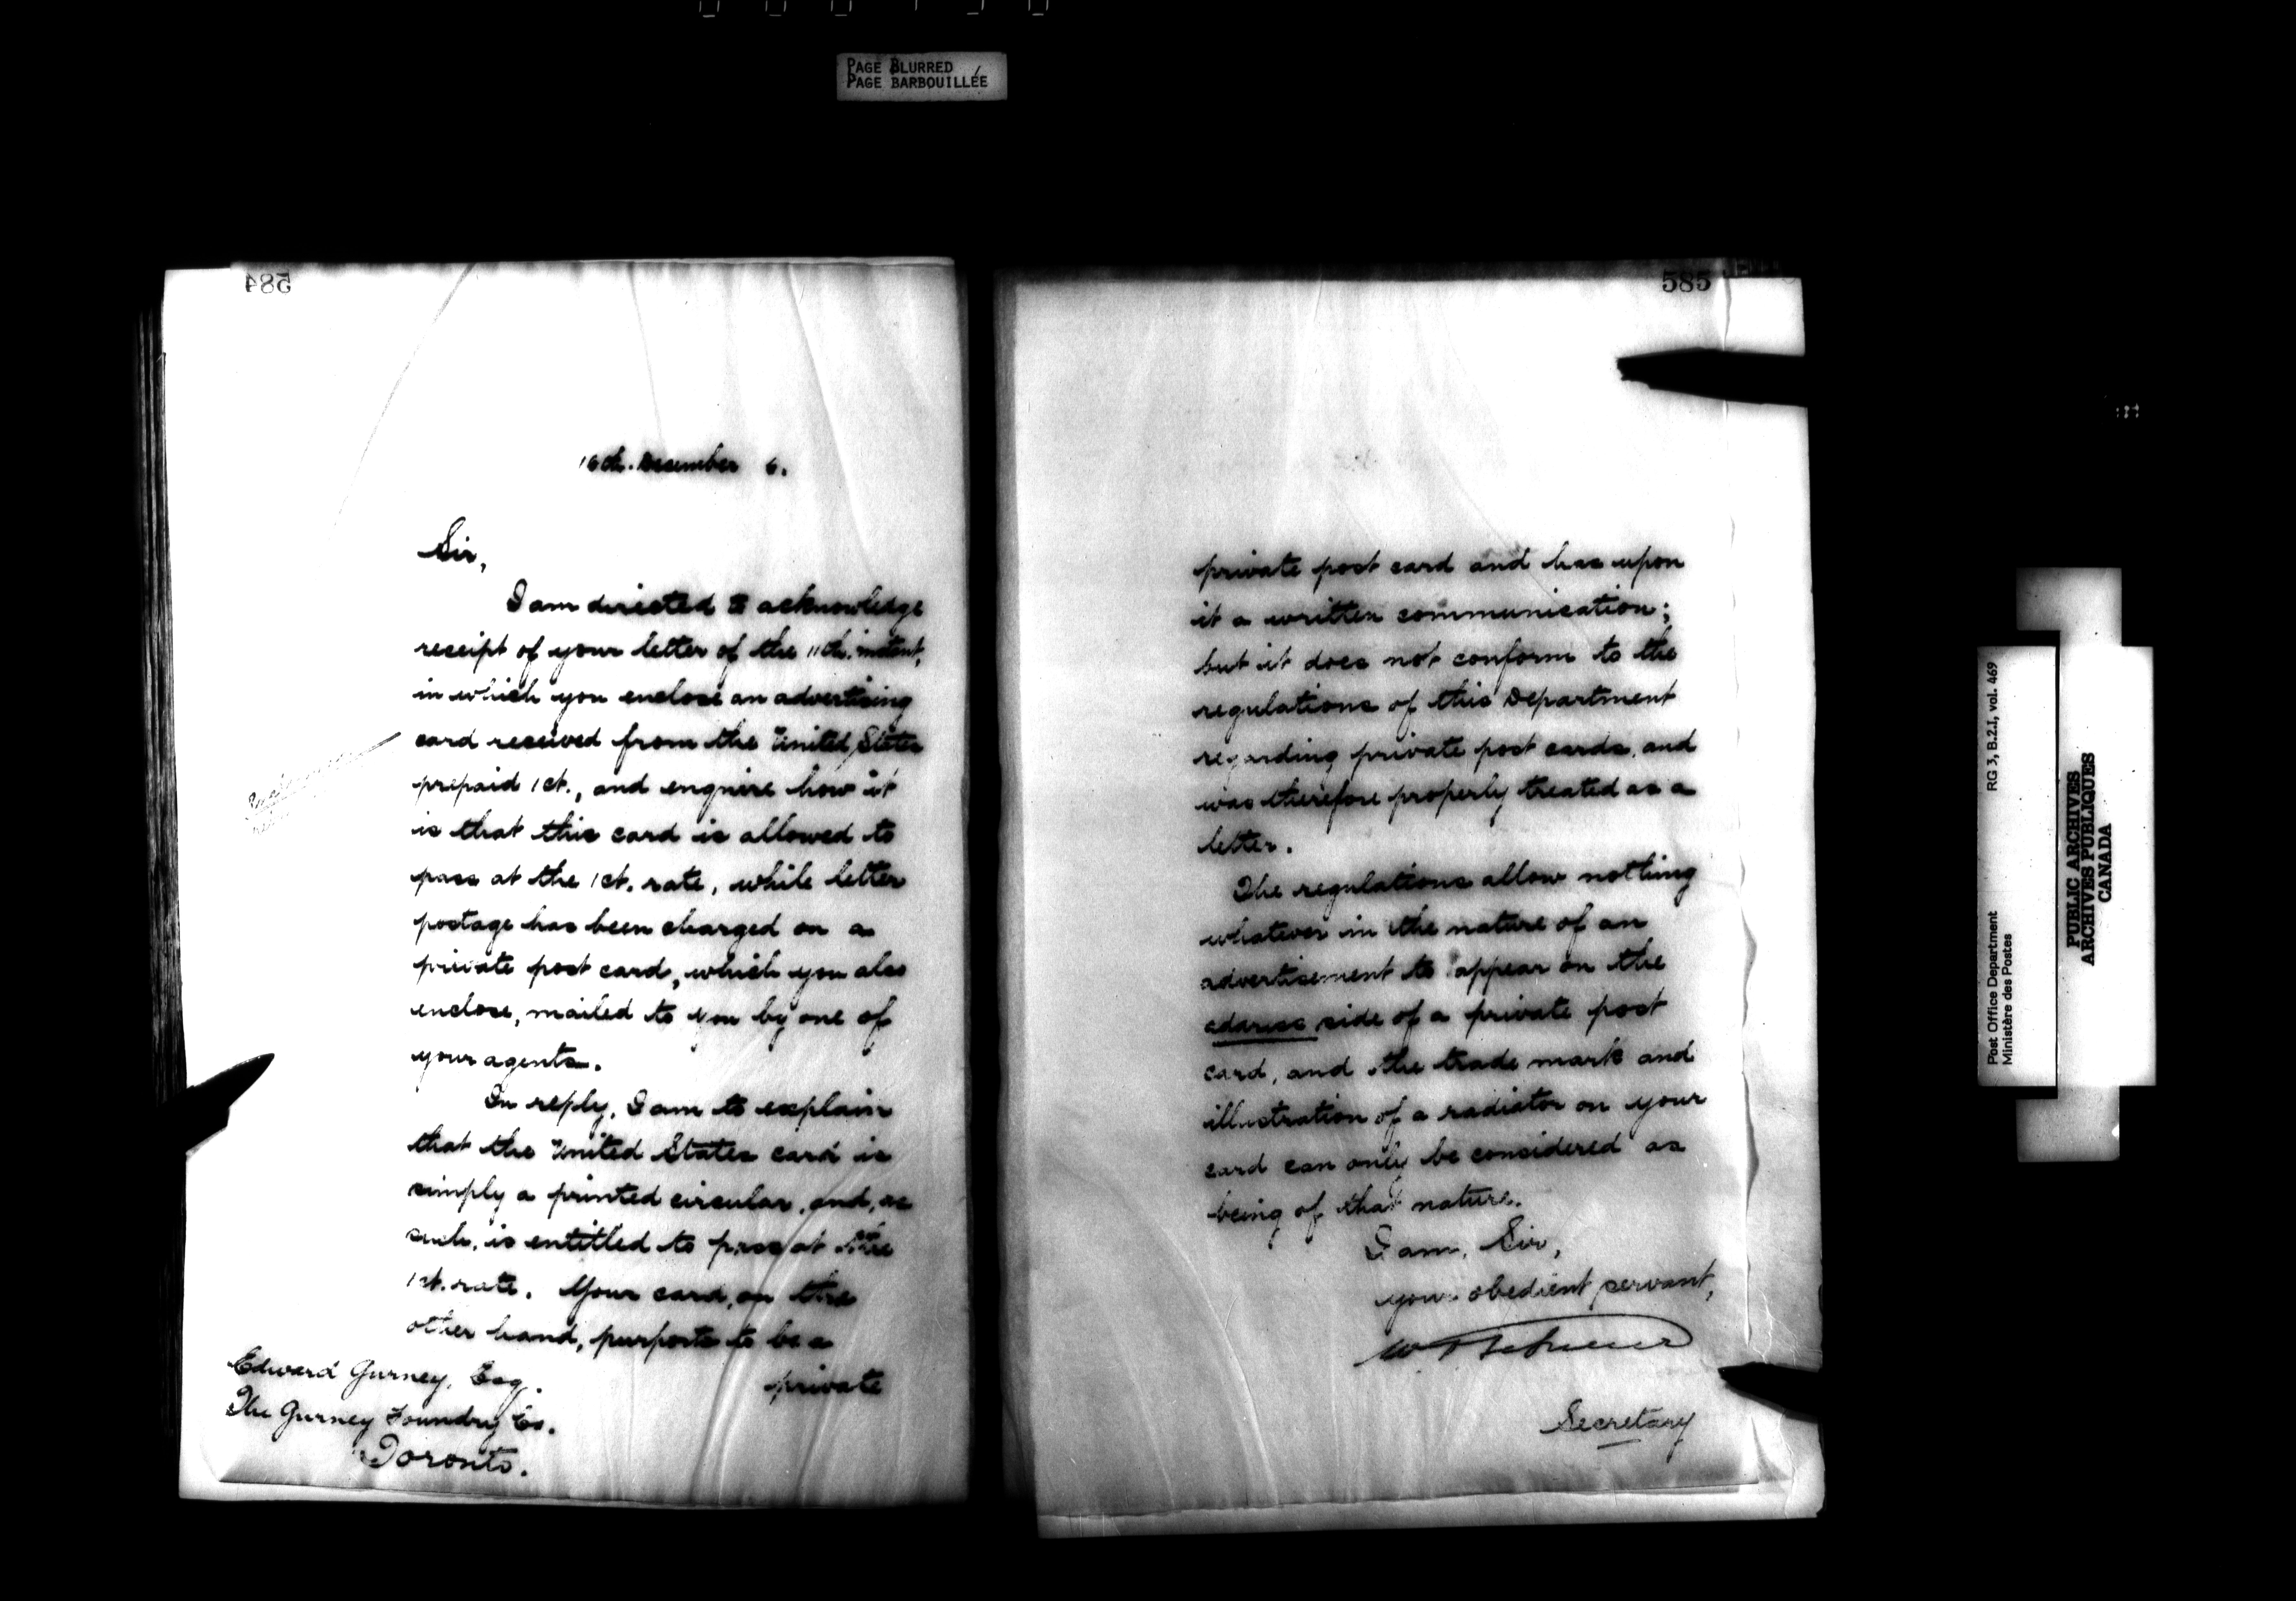 PAGE BLURRED
PAGE BARBOUILLÉE
584
16th. December 6.
Sir,
I am directed to acknowledge
receipt of your letter of the 11th. instant,
in which you enclose an advertising
card received from the United States
prepaid 1ct., and enquire how it
is that this card is allowed to
pass at the 1ct. rate, while letter
postage has been charged on a
private post card, which you also
enclose, mailed to you by one of
your agents.
In reply, I am to explain
that the United States card is
simply a printed circular, and, as
such, is entitled to pass at the
1ct. rate. Your card, on the
other hand, purports to be a
private
Edward Gurney, Esq.
The Gurney Foundry Co.
Toronto.
585
private post card and has upon
it a written communication;
but it does not conform to the
regulations of this Department
regarding private post cards, and
was therefore properly treated as a
letter.
The regulations allow nothing
whatever in the nature of an
advertisement to appear on the
address side of a private post
card, and the trade mark and
illustration of a radiator on your
card can only be considered as
being of that nature.
I am, Sir,
your obedient servant,
Secretary
Post Office Department RG 3, B.2.I, vol. 469
Ministère des Postes
PUBLIC ARCHIVES
ARCHIVES PUBLIQUES
CANADA